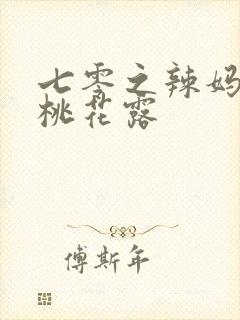 七零之辣妈
桃花露
傅斯年